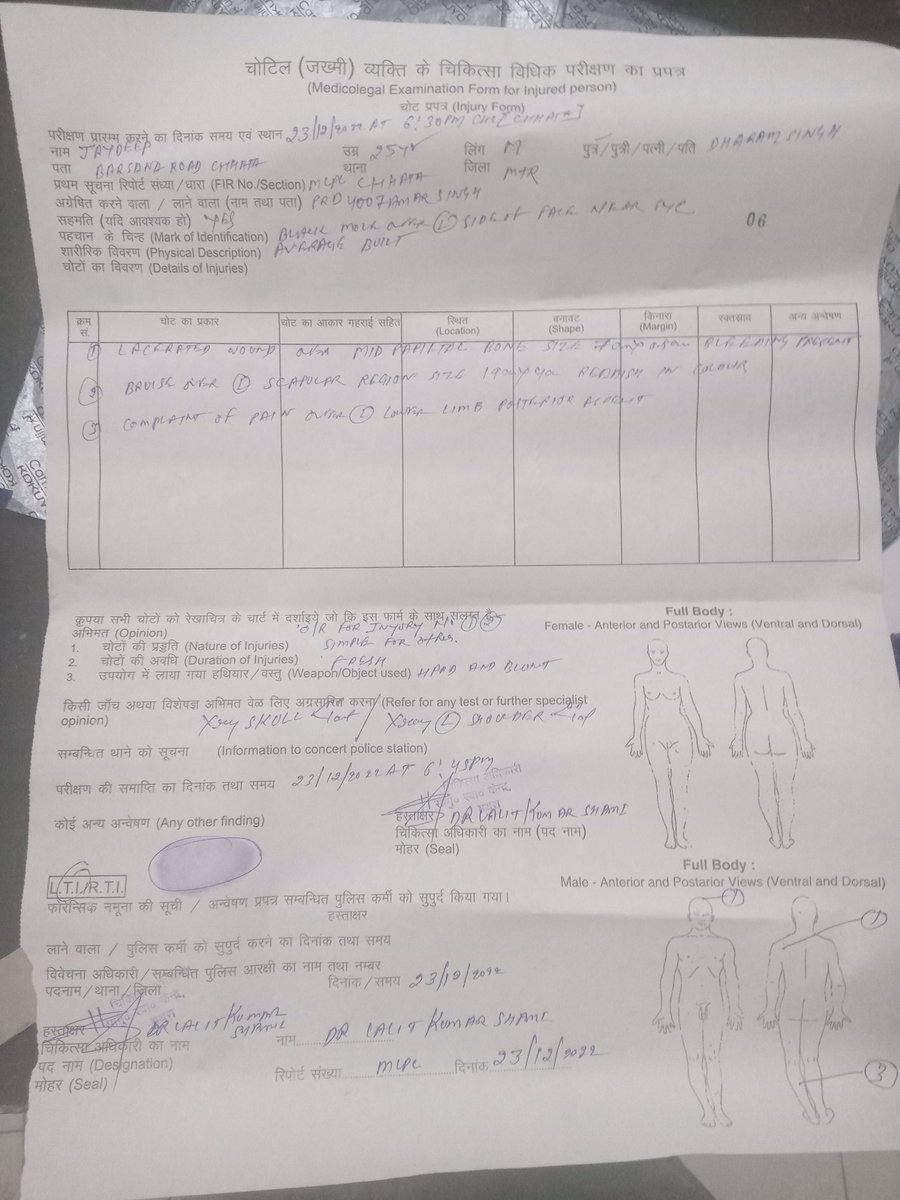 चोटिल (जख्मी) व्यक्ति के चिकित्सा विधिक परीक्षण का प्रपत्र
(Medicolegal Examination Form for Injured person)
चोट प्रपत्र (Injury Form)
परीक्षण प्रारम्भ करने का दिनांक समय एवं स्थान 23/12/2022 AT 6:30PM CHC [CHHATA]
नाम JAYDEEP उम्र 25Yr लिंग M पुत्र/पुत्री/पत्नी/पति DHARAM SINGH
पता BARSANA ROAD CHHATA थाना जिला MTR
प्रथम सूचना रिपोर्ट संध्या/धारा (FIR No./Section) MLPC CHHATA
अग्रेषित करने वाला / लाने वाला (नाम तथा पता) PRD 4007 AMAR SINGH
सहमति (यदि आवश्यक हो) YES
06
पहचान के चिन्ह (Mark of Identification) BLACK MOLE OVER (L) SIDE OF FACE NEAR EYE
शारीरिक विवरण (Physical Description) AVERAGE BUILT
चोटों का विवरण (Details of Injuries)
क्रम सं. चोट का प्रकार चोट का आकार गहराई सहित स्थित (Location) बनावट (Shape) किनारा (Margin) रक्तस्राव अन्य अन्वेषण
(1) LACERATED WOUND OVER MID PARIETAL BONE SIZE BLEEDING PRESENT
(2) BRUISE OVER (L) SCAPULAR REGION SIZE REDDISH IN COLOUR
(3) COMPLAINT OF PAIN OVER (L) LOWER LIMB POSTERIOR ASPECT
कृपया सभी चोटों को रेखाचित्र के चार्ट में दर्शाइये जो कि इस फार्म के साथ संलग्न है
अभिमत (Opinion) U/R FOR INJURY NO (1) (2)
1. चोटों की प्रड्डति (Nature of Injuries) SIMPLE FOR OTHER.
2. चोटों की अवधि (Duration of Injuries) FRESH
3. उपयोग में लाया गया हथियार/वस्तु (Weapon/Object used) HARD AND BLUNT
किसी जाँच अथवा विशेषज्ञ अभिमत वेळ लिए अग्रसारित करना/(Refer for any test or further specialist
opinion) Xray SKULL / Xray (L) SHOULDER
सम्बन्धित थाने को सूचना (Information to concert police station)
परीक्षण की समाप्ति का दिनांक तथा समय 23/12/2022 AT 6:45PM
चिकित्सा अधिकारी
हस्ताक्षर DR LALIT KUMAR SHAMI
कोई अन्य अन्वेषण (Any other finding)
चिकित्सा अधिकारी का नाम (पद नाम)
मोहर (Seal)
Full Body :
Female - Anterior and Postarior Views (Ventral and Dorsal)
L.T.I/R.T.I.
फोरेन्सिक नमूना की सूची / अन्वेषण प्रपत्र सम्बन्धित पुलिस कर्मी को सुपुर्द किया गया।
हस्ताक्षर
लाने वाला / पुलिस कर्मी को सुपुर्द करने का दिनांक तथा समय
विवेचना अधिकारी/सम्बन्धित पुलिस आरक्षी का नाम तथा नम्बर
पदनाम/थाना/जिला दिनांक/समय 23/12/2022
हस्ताक्षर DR LALIT KUMAR SHAMI नाम DR LALIT KUMAR SHAMI
चिकित्सा अधिकारी का नाम
पद नाम (Designation)
मोहर (Seal)
रिपोर्ट संख्या MLPC दिनांक 23/12/2022
Full Body :
Male - Anterior and Postarior Views (Ventral and Dorsal)
(1)
(1)
(3)